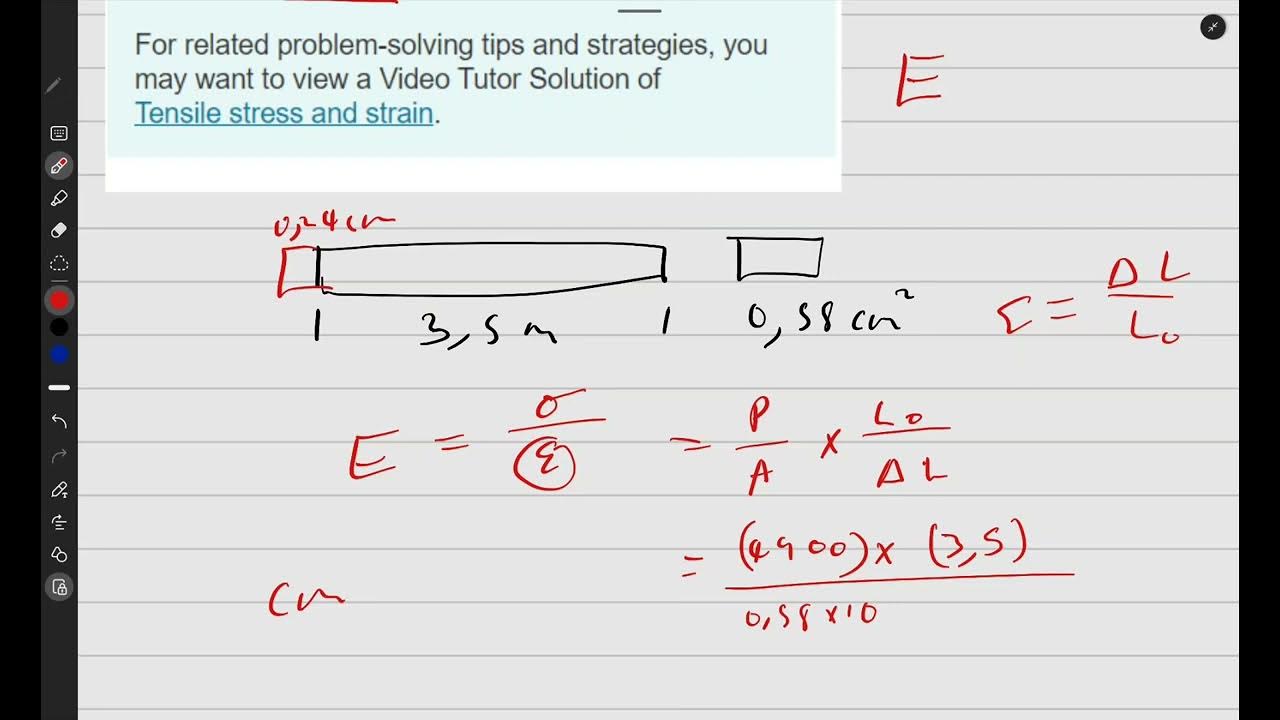 For related problem-solving tips and strategies, you
may want to view a Video Tutor Solution of
Tensile stress and strain.
E
0,24cm
3,5m
0,58cm²
ε = ΔL/L₀
E = σ/ε = P/A × L₀/ΔL
= (4900)×(3,5)
0,58×10
cm